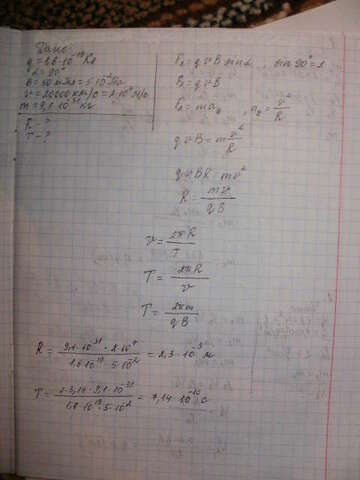 Дано:
q = 1,6·10⁻¹⁹ Кл
α = 90°
B = 50 мТл = 5·10⁻² Тл
v = 20000 км/с = 2·10⁷ м/с
m = 9,1·10⁻³¹ кг
R - ?
T - ?
Fл = q v B sin α, sin 90° = 1
Fл = q v B
Fл = m aц, aц = v²/R
q v B = m v²/R
q v B R = m v²
R = mv/qB
v = 2πR/T
T = 2πR/v
T = 2πm/qB
R = 9,1·10⁻³¹·2·10⁷/1,6·10⁻¹⁹·5·10⁻² = 2,3·10⁻³ м
T = 2·3,14·9,1·10⁻³¹/1,6·10⁻¹⁹·5·10⁻² = 7,14·10⁻¹⁰ с